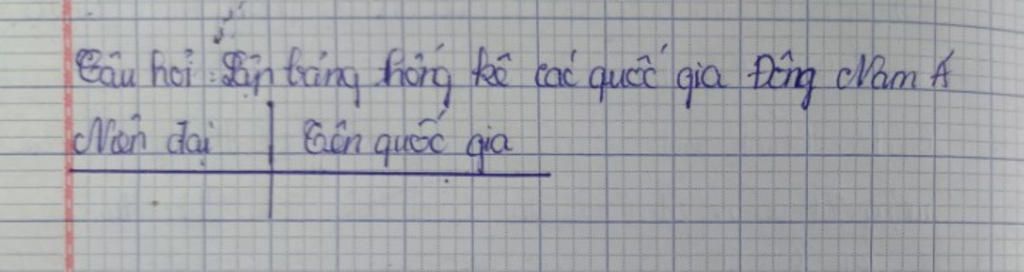 Câu hỏi : Lập bảng thống kê các quốc gia Đông Nam Á
Niên đại | Tên quốc gia